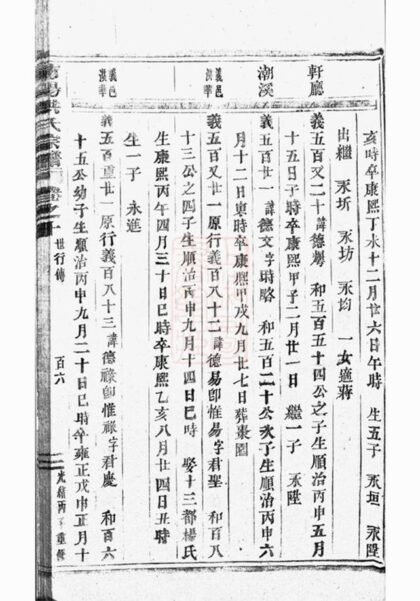 軒廳
潮溪
義邑
湳華
義邑
湳華
亥時卒康熙丁未十二月廿六日午時 生五子 永垣 永陞
出繼 永圻 永坊 永均 一女適蔣
義五百又二十 諱德 和五百五十四公之子生順治丙申五月
十五日子時卒康熙甲子二月廿一日 繼一子 永陞
義五百廿一 諱德文字時略 和五百二十公次子生順治丙申六
月十二日寅時卒康熙甲戌九月廿七日葬 園
義五百又廿一原行義百八十二諱德易卽惟易字君聖 和百八
十三公之四子生順治丙申九月十四日巳時 娶十三都楊氏
生康熙丙午四月三十日巳時卒康熙乙亥八月廿四日丑時
生一子 永進
義五百重廿一原行義百八十三諱德祿卽惟祿字君慶 和百六
十五公幼子生順治丙申九月二十日巳時卒雍正戊申正月十
氏宗譜 卷之一 世行傳 百六 光緒丙子重修